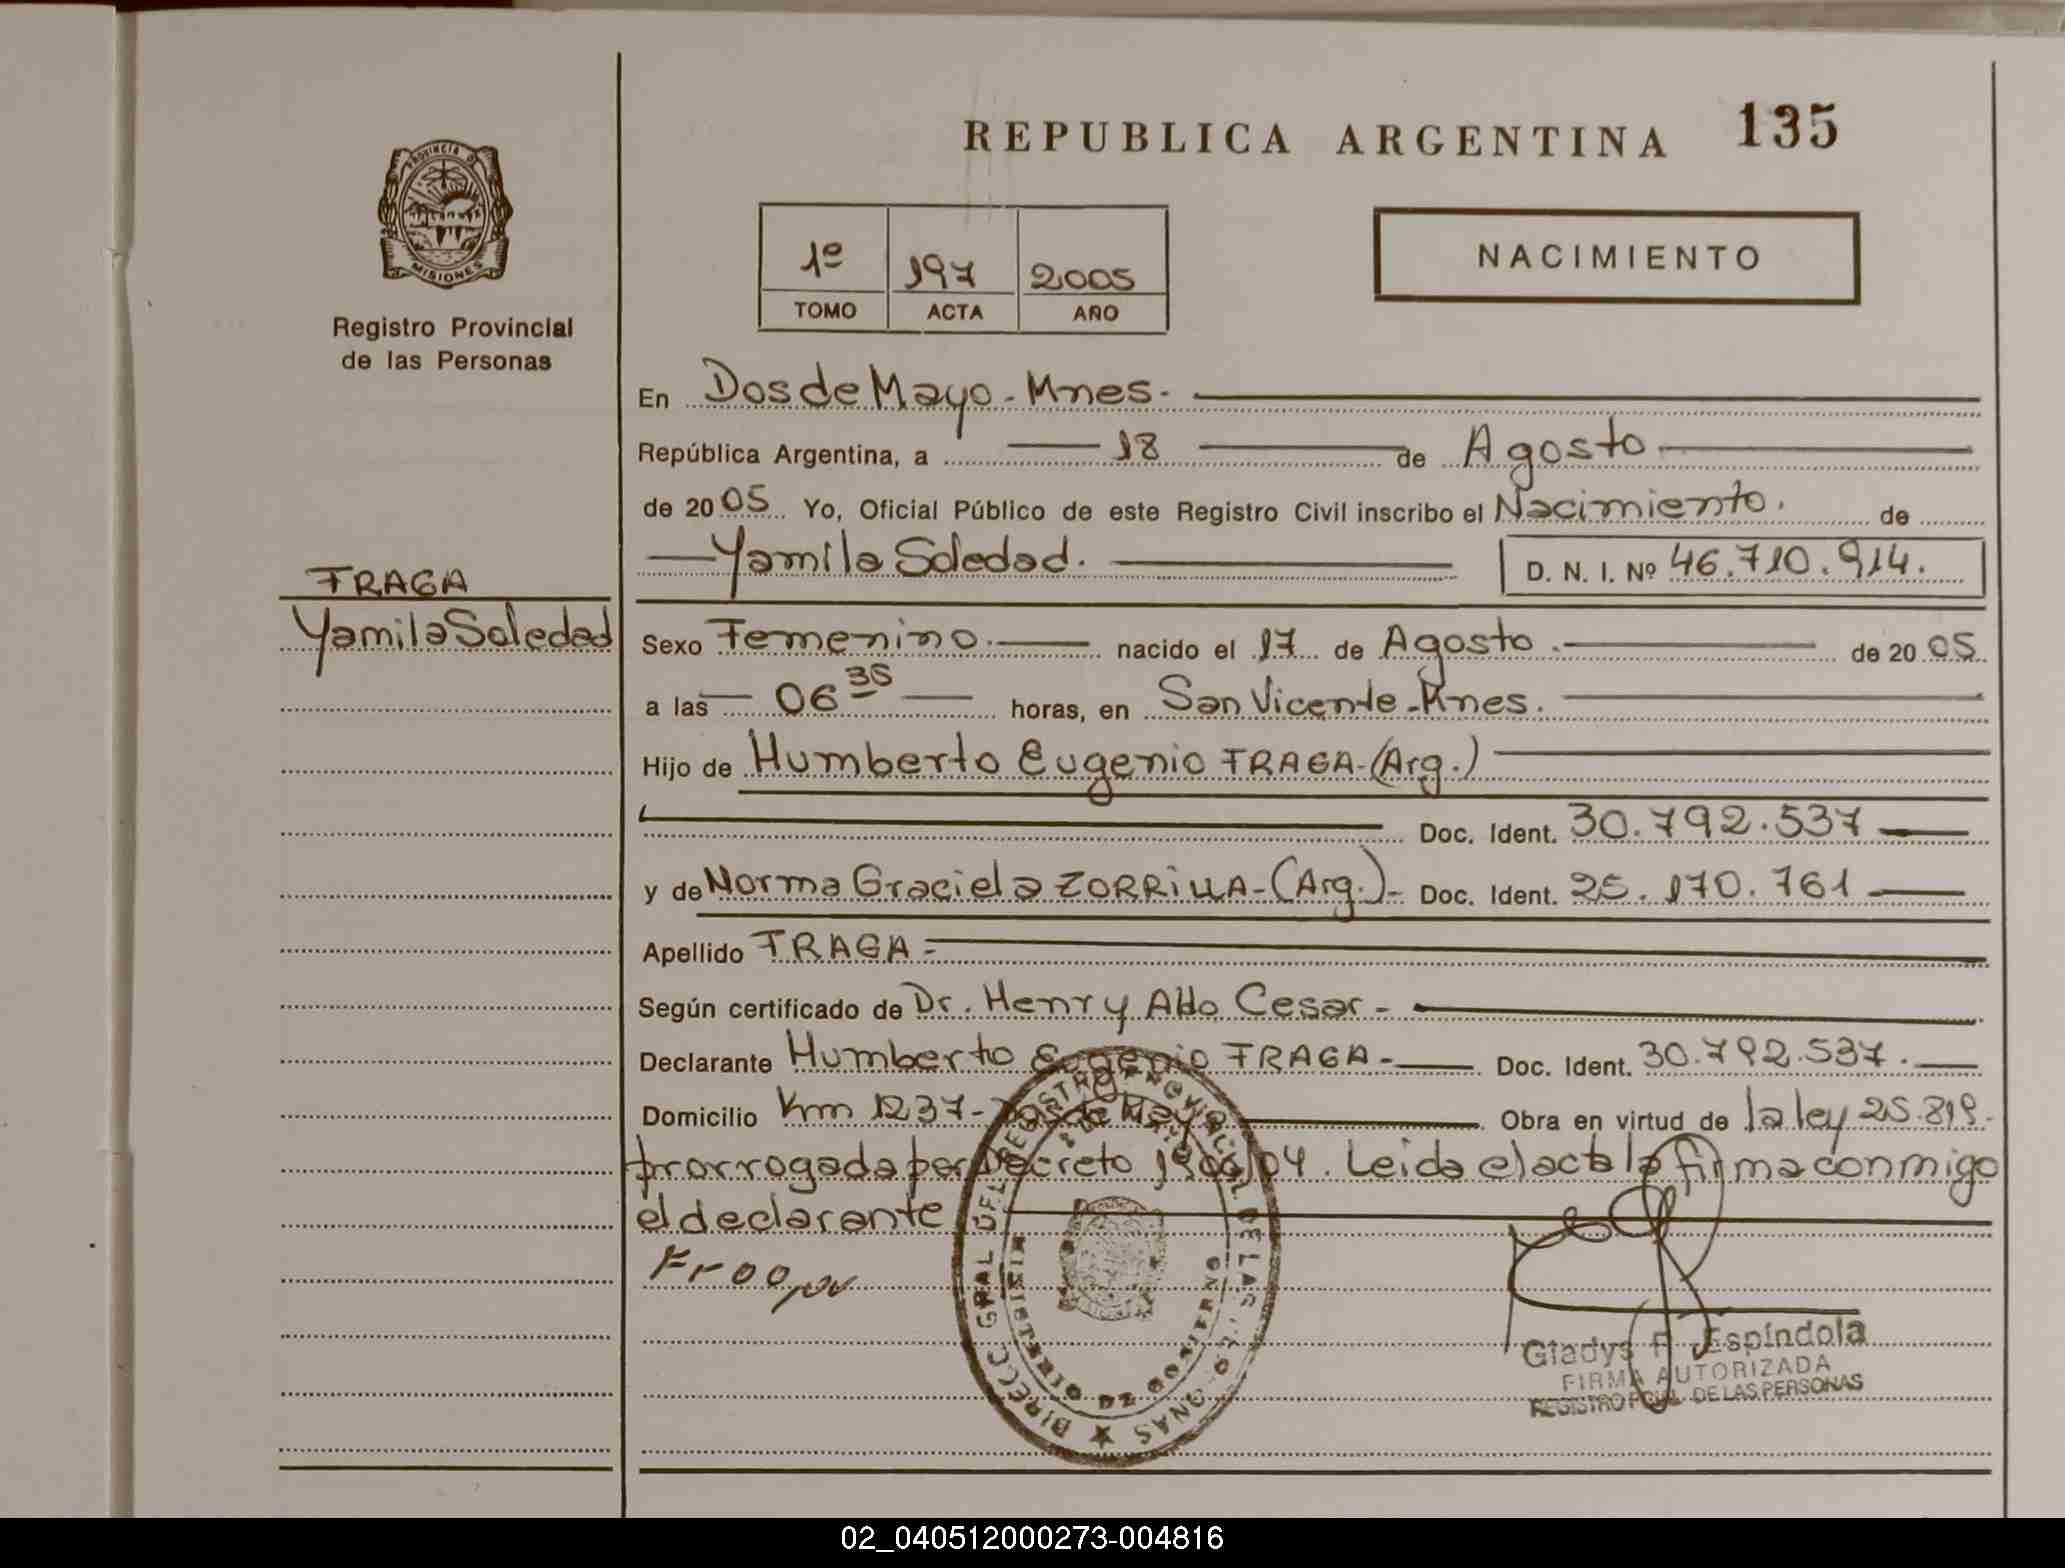 REPUBLICA ARGENTINA 135
PROVINCIA D
MISIONES
Registro Provincial
de las Personas
1º 197 2005
TOMO ACTA AÑO
NACIMIENTO
En Dos de Mayo - Mnes.
República Argentina, a 18 de Agosto
de 2005 Yo, Oficial Público de este Registro Civil inscribo el Nacimiento. de
Yamila Soledad. D. N. I. Nº 46.710.914.
FRAGA
Yamila Soledad
Sexo Femenino. nacido el 17 de Agosto. de 2005
a las 06 35 horas, en San Vicente - Mnes.
Hijo de Humberto Eugenio FRAGA - (Arg.)
Doc. Ident. 30.792.537
y de Norma Graciela ZORRILLA - (Arg.) - Doc. Ident. 25.170.761
Apellido FRAGA -
Según certificado de Dr. Henry Aldo Cesar -
Declarante Humberto Eugenio FRAGA - Doc. Ident. 30.792.537.
Domicilio Km 1237 - Dos de Mayo Obra en virtud de la ley 25.819.
prorrogada por Decreto /04. Leida el acta la firma conmigo
el declarante
Gladys Espíndola
FIRMA AUTORIZADA
REGISTRO PCIAL. DE LAS PERSONAS
02_040512000273-004816